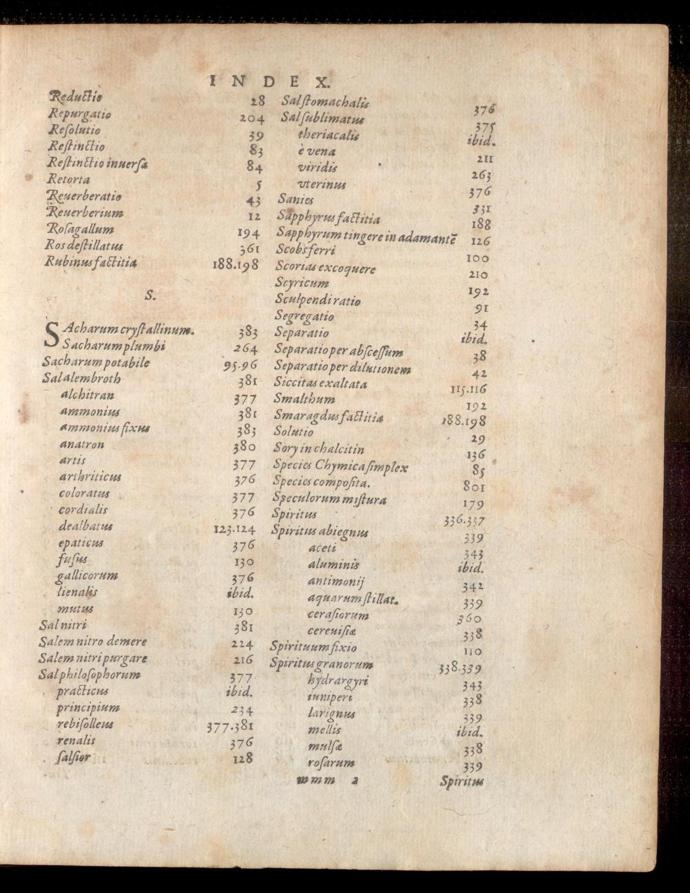 INDEX.
Reductio 28
Repurgatio 204
Reſolutio 39
Reſtinctio 83
Reſtinctio inuerſa 84
Retorta 5
Reuerberatio 43
Reuerberium 12
Roſagallum 194
Ros deſtillatus 361
Rubinus factitia 188.198
S.
SAcharum cryſtallinum. 383
Sacharum plumbi 264
Sacharum potabile 95.96
Sal alembroth 381
alchitran 377
ammonius 381
ammonius fixus 383
anatron 380
artis 377
arthriticus 376
coloratus 377
cordialis 376
dealbatus 123.124
epaticus 376
fuſus 130
gallicorum 376
lienalis ibid.
mutus 130
Sal nitri 381
Salem nitro demere 224
Salem nitri purgare 216
Sal philoſophorum 377
practicus ibid.
principium 234
rebiſolleus 377.381
renalis 376
ſalſior 128
Sal ſtomachalis 376
Sal ſublimatus 375
theriacalis ibid.
è vena 211
viridis 263
vterinus 376
Sanies 331
Sapphyrus factitia 188
Sapphyrum tingere in adamantē 126
Scobs ferri 100
Scorias excoquere 210
Scyricum 192
Sculpendi ratio 91
Segregatio 34
Separatio ibid.
Separatio per abſceſſum 38
Separatio per dilutionem 42
Siccitas exaltata 115.116
Smalthum 192
Smaragdus factitia 188.198
Solutio 29
Sory in chalcitin 136
Species Chymica ſimplex 85
Species compoſita. 801
Speculorum miſtura 179
Spiritus 336.337
Spiritus abiegnus 339
aceti 343
aluminis ibid.
antimonij 342
aquarum ſtillat. 339
ceraſiorum 360
cereuiſiæ 338
Spirituum fixio 110
Spiritus granorum 338.339
hydrargyri 343
iuniperi 338
larignus 339
mellis ibid.
mulſæ 338
roſarum 339
mmm 2 Spiritus